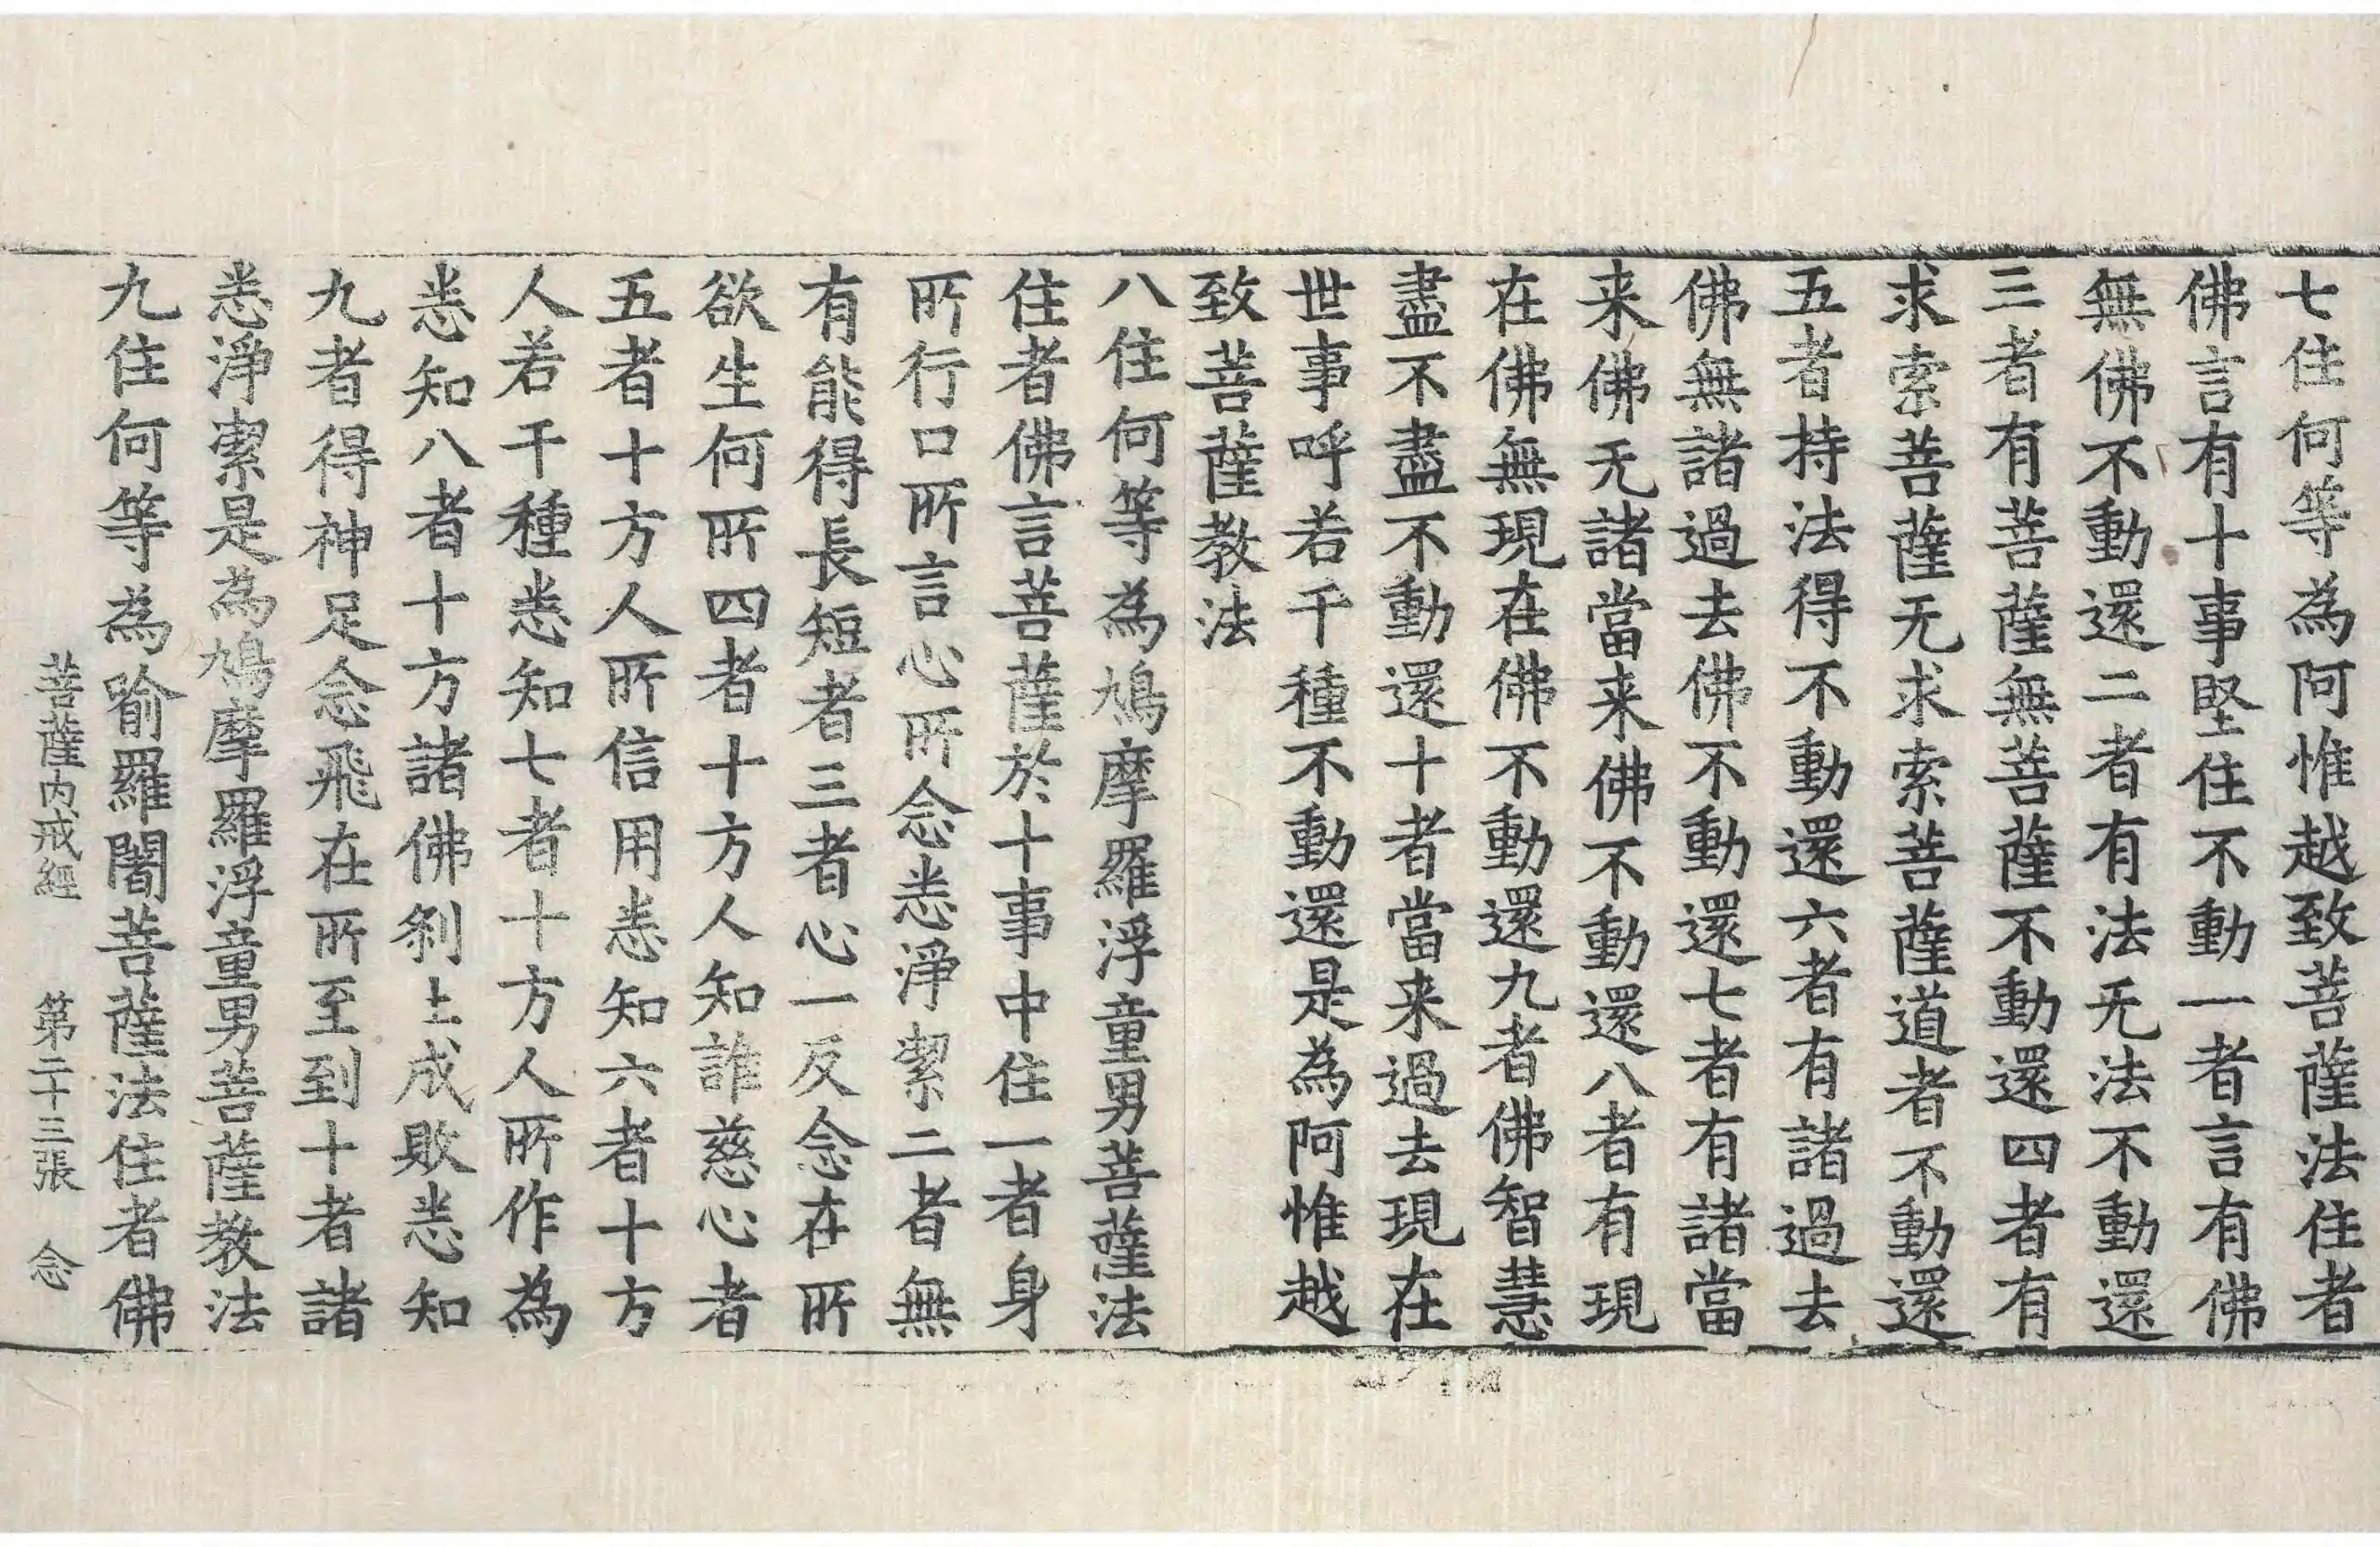 七住何等為阿惟越致菩薩法住者
佛言有十事堅住不動一者言有佛
無佛不動還二者有法无法不動還
三者有菩薩無菩薩不動還四者有
求索菩薩无求索菩薩道者不動還
五者持法得不動還六者有諸過去
佛無諸過去佛不動還七者有諸當
来佛无諸當来佛不動還八者有現
在佛無現在佛不動還九者佛智慧
盡不盡不動還十者當来過去現在
世事呼若干種不動還是為阿惟越
致菩薩教法
八住何等為鳩摩羅浮童男菩薩法
住者佛言菩薩於十事中住一者身
所行口所言心所念悉淨潔二者無
有能得長短者三者心一反念在所
欲生何所四者十方人知誰慈心者
五者十方人所信用悉知六者十方
人若干種悉知七者十方人所作為
悉知八者十方諸佛刹土成敗悉知
九者得神足念飛在所至到十者諸
悉淨潔是為鳩摩羅浮童男菩薩教法
九住何等為踰羅闍菩薩法住者佛
菩薩内戒經 第二十三張 念